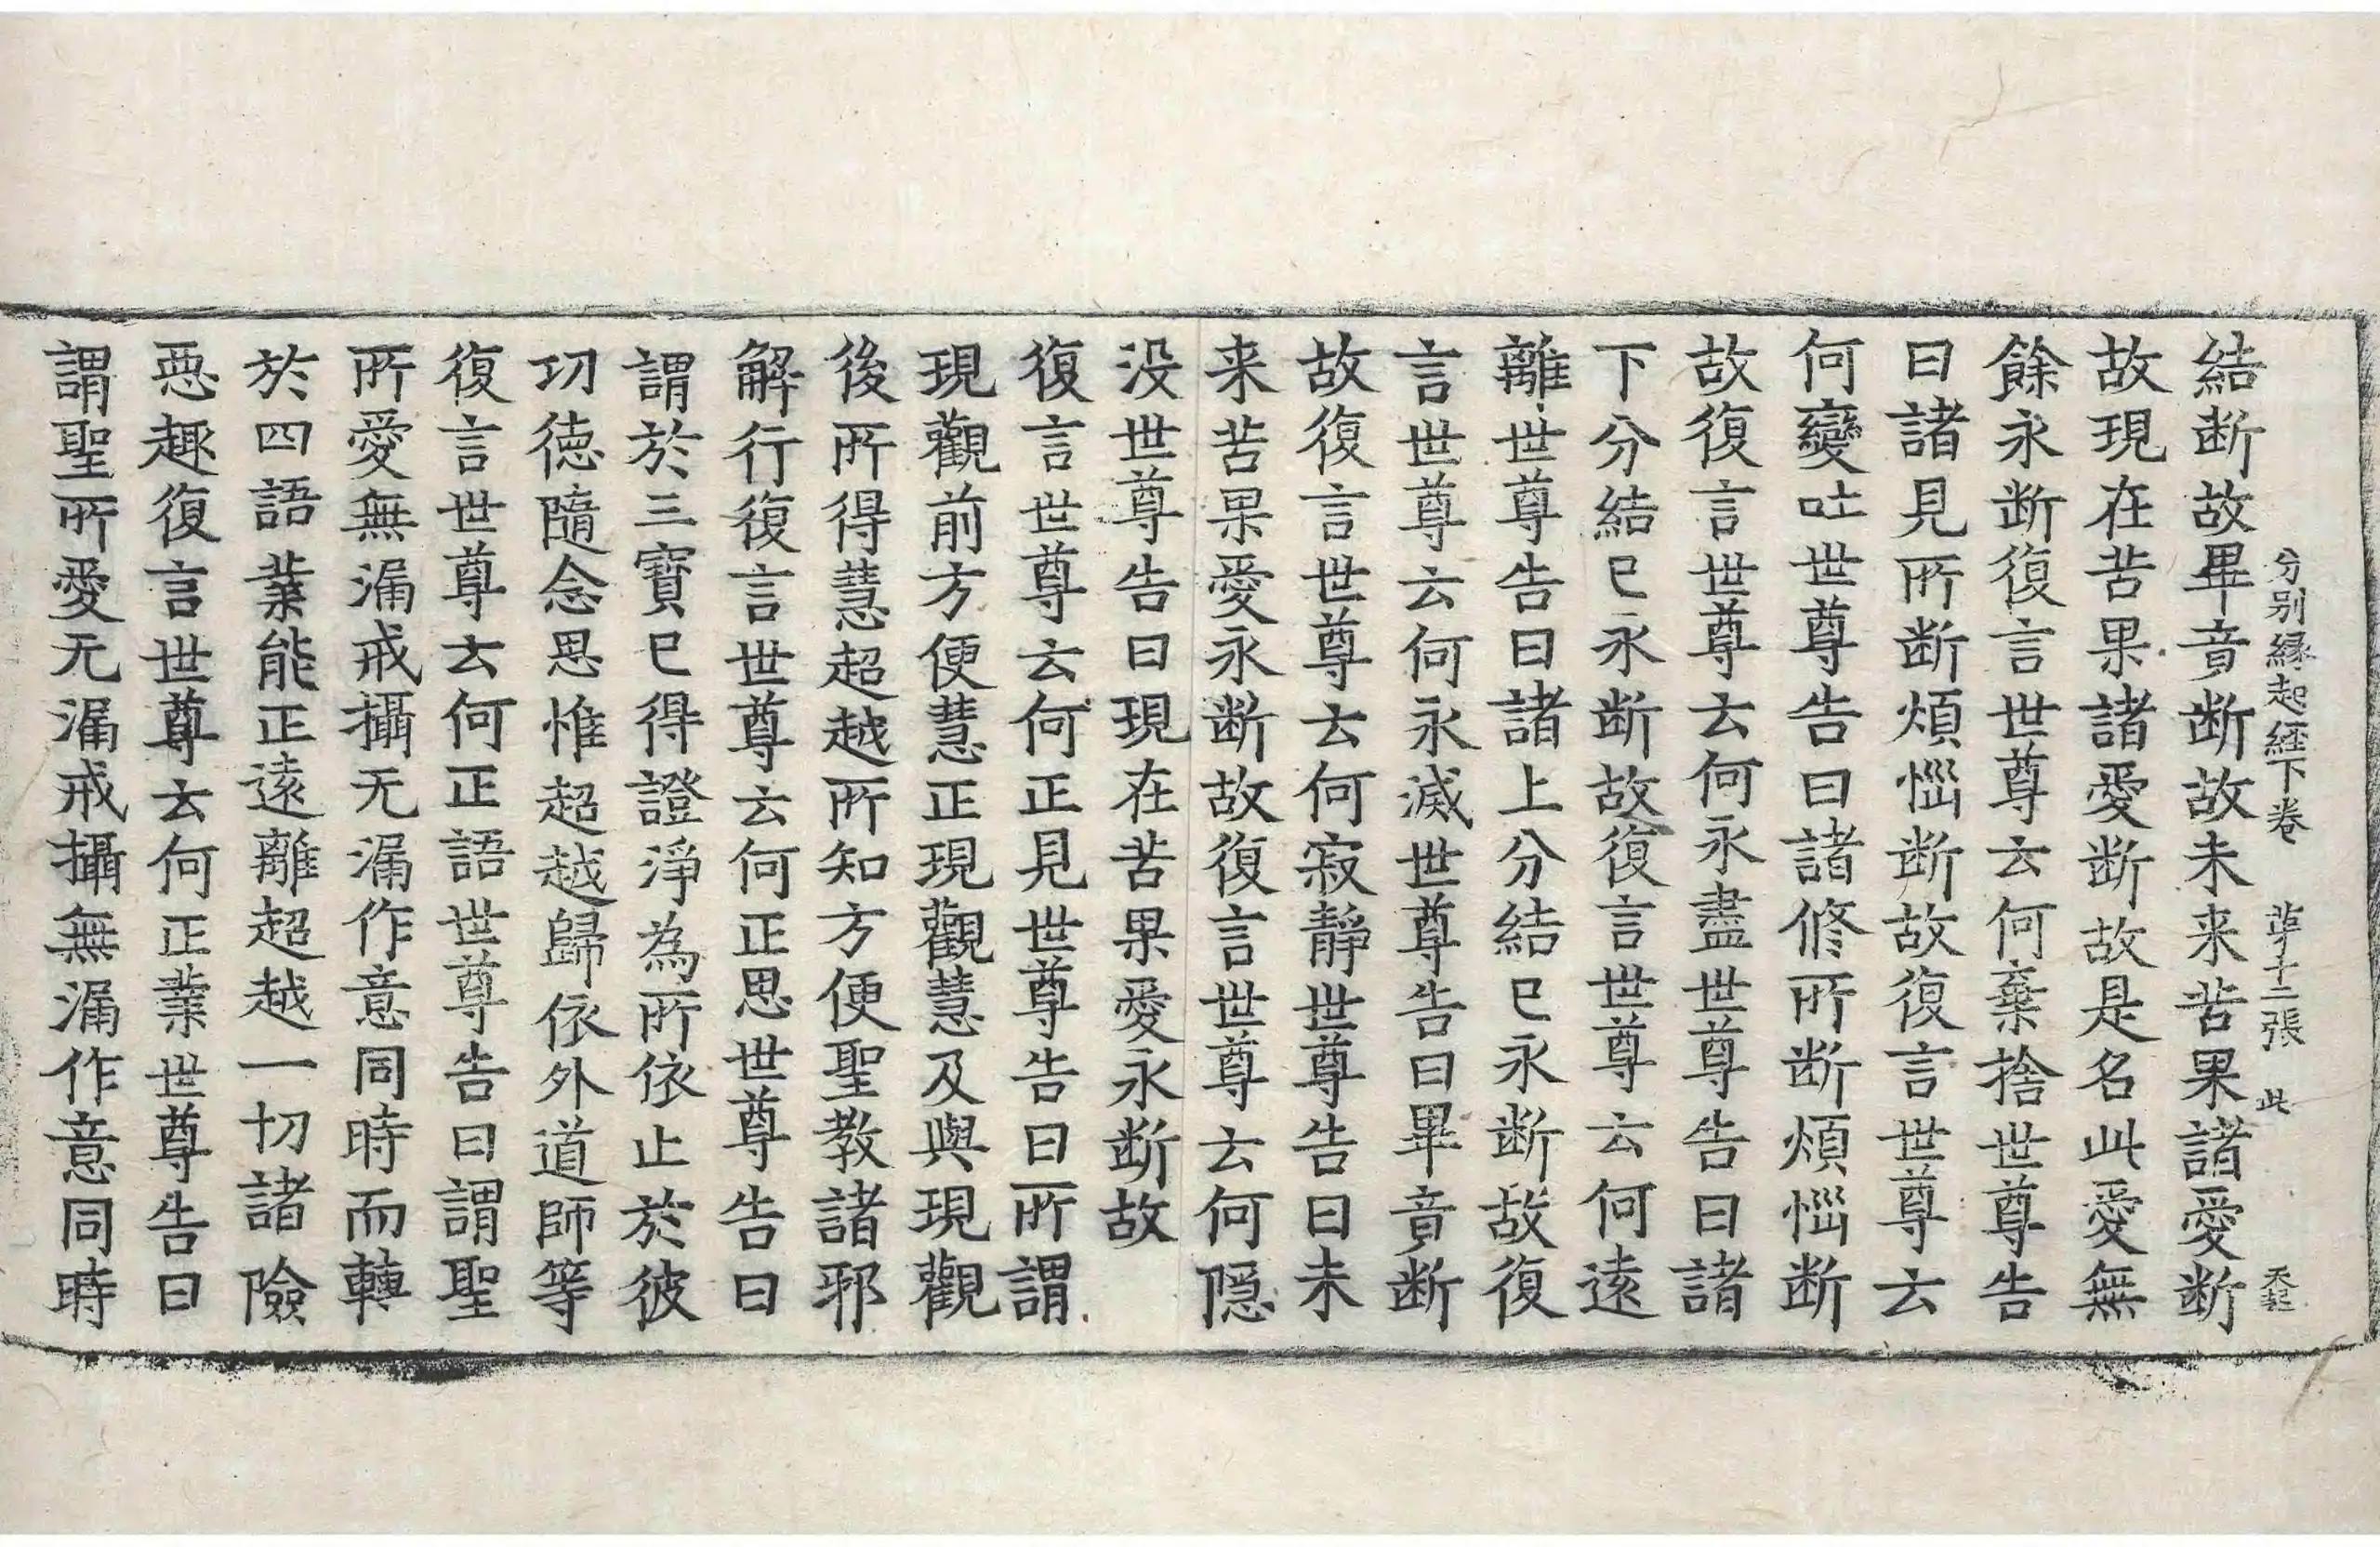 分别縁起經下卷　苐十二張　此　禾記
結断故畢竟断故未来苦果諸愛断
故現在苦果諸愛断故是名此愛無
餘永断復言世尊云何棄捨世尊告
曰諸見所断煩惱断故復言世尊云
何變吐世尊告曰諸修所断煩惱断
故復言世尊云何永盡世尊告曰諸
下分結已永断故復言世尊云何遠
離世尊告曰諸上分結已永断故復
言世尊云何永滅世尊告曰畢竟断
故復言世尊云何寂靜世尊告曰未
来苦果愛永断故復言世尊云何隠
没世尊告曰現在苦果愛永断故
復言世尊云何正見世尊告曰所謂
現觀前方便慧正現觀慧及與現觀
後所得慧超越所知方便聖教諸邪
解行復言世尊云何正思世尊告曰
謂於三寶已得證淨為所依止於彼
切徳隨念思惟超越歸依外道師等
復言世尊云何正語世尊告曰謂聖
所愛無漏戒攝无漏作意同時而轉
於四語業能正遠離超越一切諸險
惡趣復言世尊云何正業世尊告曰
謂聖所愛无漏戒攝無漏作意同時